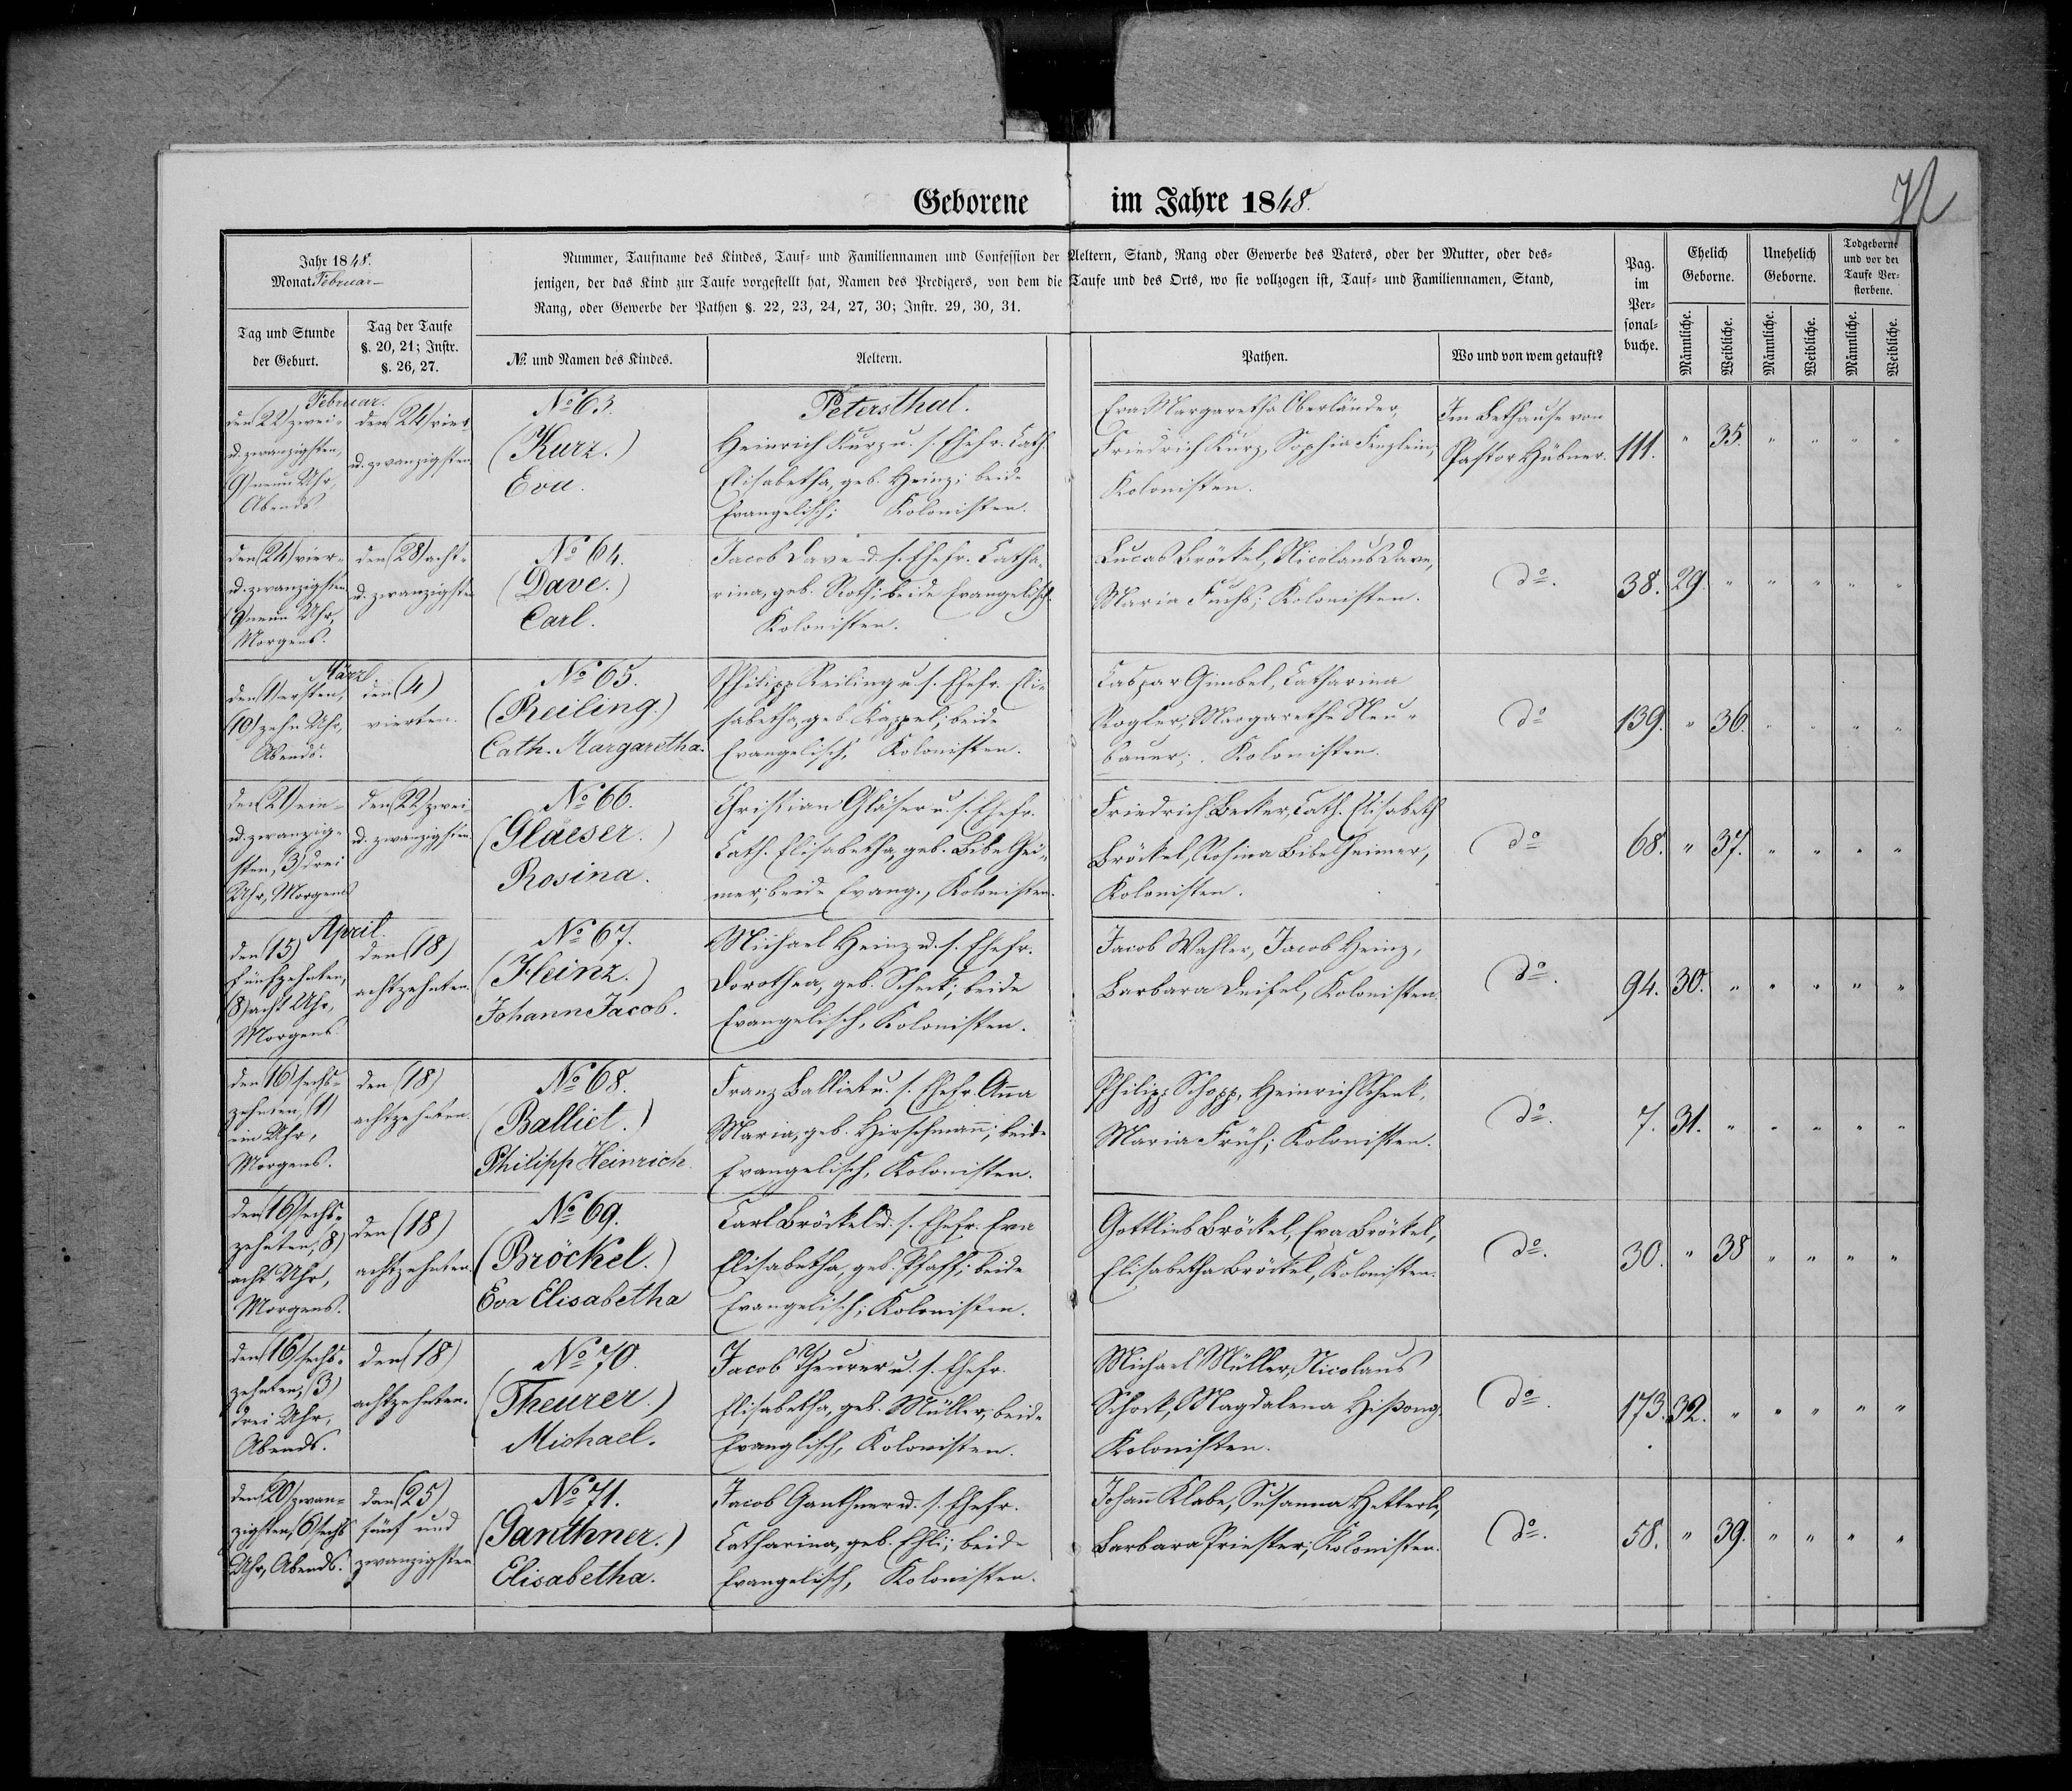 Geborene im Jahre 1848.
72
Jahr 1848.
Monat Februar
Nummer, Taufname des Kindes, Tauf- und Familiennamen und Confession der Aeltern, Stand, Rang oder Gewerbe des Vaters, oder der Mutter, oder des-
jenigen, der das Kind zur Taufe vorgestellt hat, Namen des Predigers, von dem die Taufe und des Orts, wo sie vollzogen ist, Tauf- und Familiennamen, Stand,
Rang, oder Gewerbe der Pathen §. 22, 23, 24, 27, 30; Instr. 29, 30, 31.
Pag.
im
Per-
sonal-
buche.
Ehelich
Geborne.
Unehelich
Geborne.
Todgeborne
und vor der
Taufe Ver-
storbene.
Tag und Stunde
der Geburt.
Tag der Taufe
§. 20, 21; Instr.
§. 26, 27.
№ und Namen des Kindes.
Aeltern.
Pathen.
Wo und von wem getauft?
Männliche.
Weibliche.
Männliche.
Weibliche.
Männliche.
Weibliche.
Februar.
den (22) zwei-
u. zwanzigsten,
(9) neun Uhr,
Abends
den (24) vier
u. zwanzigsten
No 63.
(Kurz.)
Eva.
Petersthal.
Heinrich Kurz u. s. Ehefr. Cath.
Elisabetha, geb. Heinz; beide
Evangelisch; Kolonisten.
Eva Margaretha Oberländer,
Friedrich Kurz, Sophia Enzlein,
Kolonisten.
Im Bethause von
Pastor Hübner.
111. " 35. " " " "
den (24) vier-
u. zwanzigsten
(9) neun Uhr,
Morgens.
den (28) acht-
u. zwanzigsten
No 64.
(Dave.)
Carl.
Jacob Dave u. s. Ehefr. Catha-
rina, geb. Roth; beide Evangelisch
Kolonisten.
Lucas Bröckel, Nicolaus Dave,
Maria Fuchs; Kolonisten.
do.
38. 29. " " " " "
März.
den (1) ersten,
(10) zehn Uhr,
Abends.
den (4)
vierten.
No 65.
(Reiling.)
Cath. Margaretha.
Philipp Reiling u. s. Ehefr. Eli-
sabetha, geb. Kappel; beide
Evangelisch, Kolonisten.
Caspar Gimbel, Catharina
Kogler, Margaretha Neu-
bauer; Kolonisten.
do
139. " 36. " " " "
den (21) ein-
u. zwanzig-
sten, (3) drei
Uhr, Morgens
den (22) zwei
u. zwanzigsten.
No 66.
(Glaeser.)
Rosina.
Christian Gläser u. s. Ehefr.
Cath. Elisabetha, geb. Bibelhei-
mer; beide Evang., Kolonisten.
Friedrich Becker, Cath. Elisabeth
Bröckel, Rosina Bibelheimer,
Kolonisten.
do
68. " 37. " " " "
April.
den (15)
fünfzehnten,
(8) acht Uhr,
Morgens
den (18)
achtzehnten.
No 67.
(Heinz.)
Johann Jacob.
Michael Heinz u. s. Ehefr.
Dorothea, geb. Schenk; beide
Evangelisch, Kolonisten.
Jacob Wahler, Jacob Heinz,
Barbara Deisel, Kolonisten.
do.
94. 30. " " " " "
den (16) sechs-
zehnten, (1)
ein Uhr,
Morgens.
den (18)
achtzehnten
No 68.
(Balliet.)
Philipp Heinrich.
Franz Balliet u. s. Ehefr. Anna
Maria, geb. Hirschmann; beide
Evangelisch, Kolonisten.
Philipp Schopp, Heinrich Schenk,
Maria Früh; Kolonisten.
do.
7. 31. " " " " "
den (16) sechs-
zehnten, (8)
acht Uhr,
Morgens.
den (18)
achtzehnten.
No 69.
(Bröckel.)
Eva Elisabetha
Carl Bröckel u. s. Ehefr. Eva
Elisabetha, geb. Pfaff; beide
Evangelisch; Kolonisten.
Gottlieb Bröckel, Eva Bröckel,
Elisabetha Bröckel, Kolonisten.
do.
30. " 38 " " " "
den (16) sechs-
zehnten, (3)
drei Uhr,
Abends.
den (18)
achtzehnten.
No 70.
(Theurer.)
Michael.
Jacob Theurer u. s. Ehefr.
Elisabetha, geb. Müller, beide
Evanglisch, Kolonisten.
Michael Müller, Nicolaus
Schock, Magdalena Hißong.
Kolonisten.
do.
173. 32. " " " " "
den (20) zwan-
zigsten, (6) sechs
Uhr, Abends.
den (25)
fünf und
zwanzigsten
No 71.
(Ganthner.)
Elisabetha.
Jacob Ganthner u. s. Ehefr.
Catharina, geb. Ehli; beide
Evangelisch, Kolonisten.
Johann Klabe, Susanna Hetterle,
Barbara Priester; Kolonisten.
do.
58. " 39. " " " "